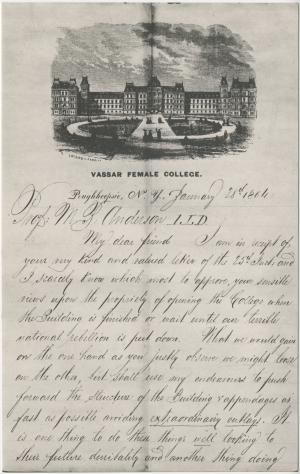 VASSAR FEMALE COLLEGE.
Poughkeepsie, N. Y. January 28th 1864
Prof. M. B. Anderson L.L.D.
My dear friend I am in receipt of
your very kind and valued letter of the 25th Inst. and
I scarcely know which most to approve, your sensible
views upon the propriety of opening the College when
the Building is finished or wait until our terrible
national rebellion is put down. What we would gain
on the one hand as you justly observe we might loose
on the other, but shall use my endeavours to push
forward the structure of the Building & appendages as
fast as possible avoiding extraordinary outlays. It
is one thing to do these things well looking to
their future durability and another thing doing